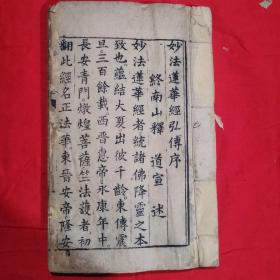 妙法蓮華經弘傳序
終南山釋 道宣 述
妙法蓮華經者統諸佛降靈之本
致也蘊結大夏出彼千齡東傳震
旦三百餘載西晉惠帝永康年中
長安青門燉煌菩薩竺法護者初
翻此經名正法華東晉安帝隆安